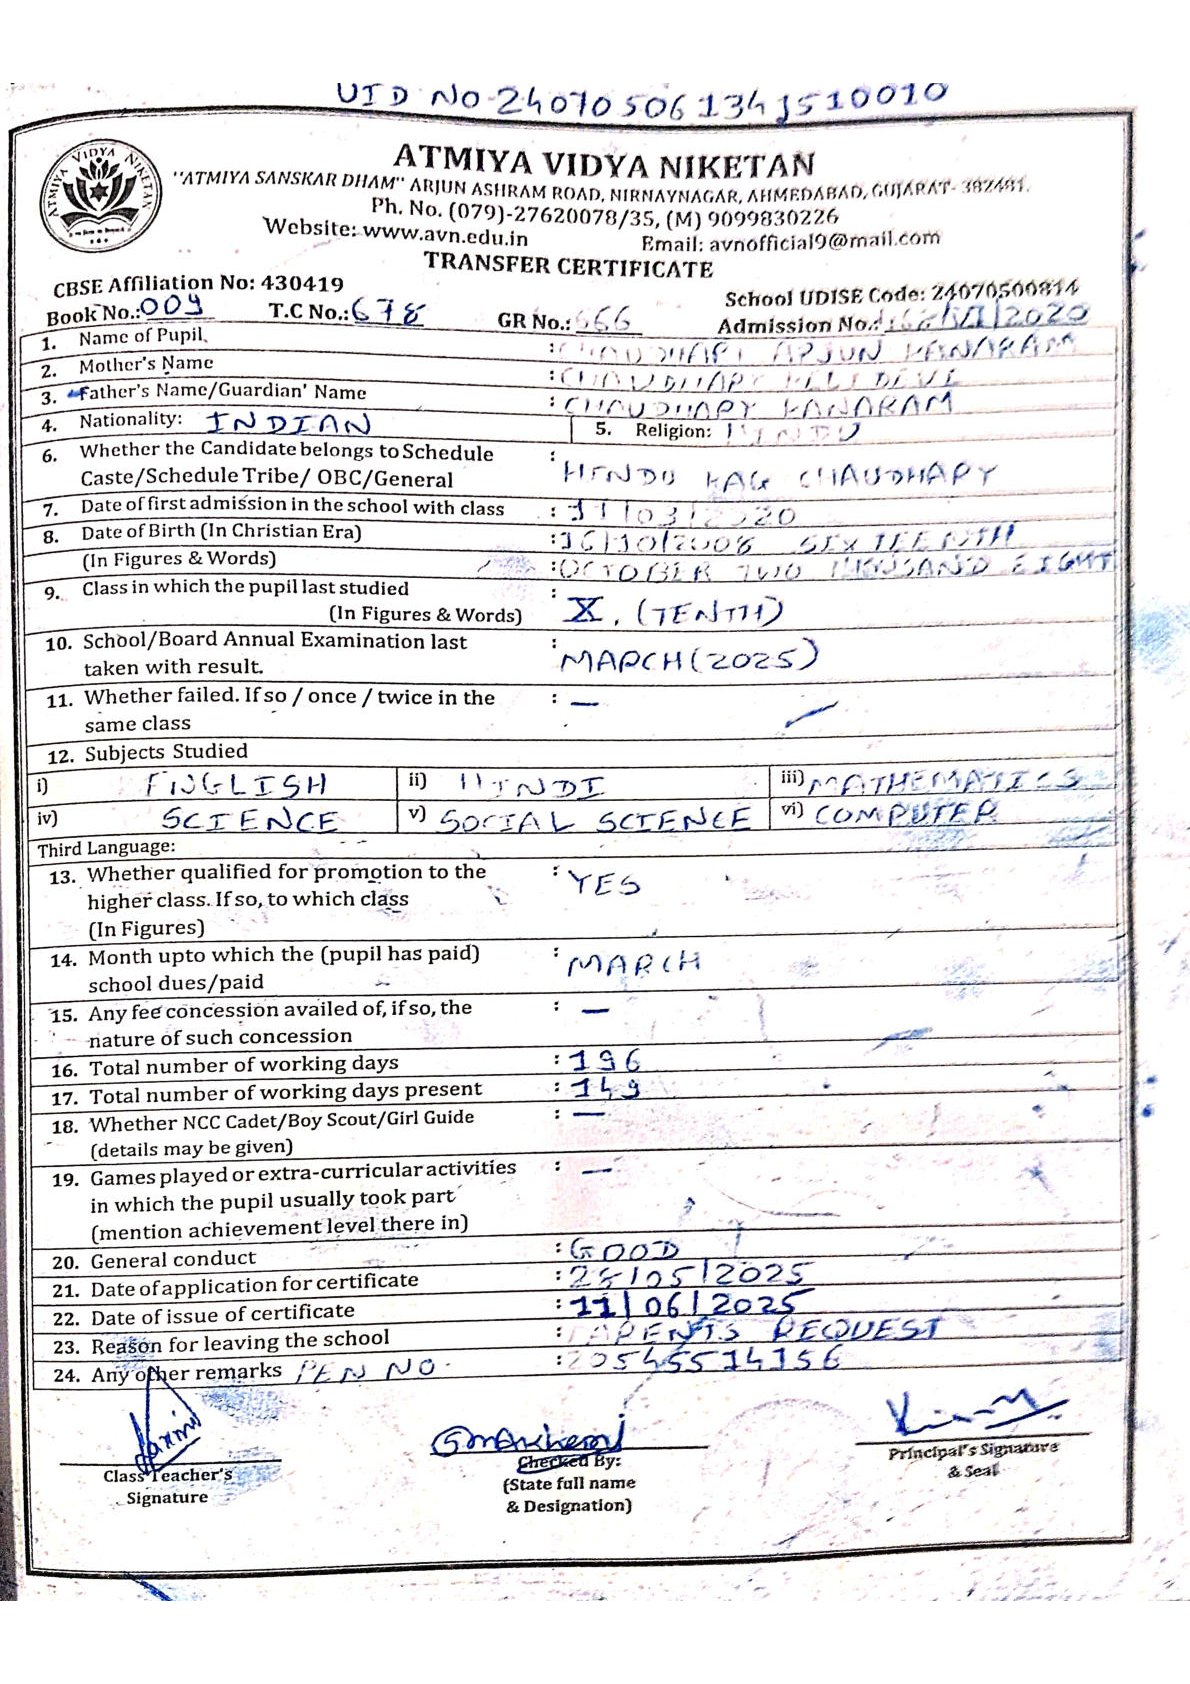 UID NO-240705061341510010
ATMIYA VIDYA NIKETAN
ATMIYA VIDYA NIKETAN
"ATMIYA SANSKAR DHAM" ARJUN ASHRAM ROAD, NIRNAYNAGAR, AHMEDABAD, GUJARAT- 382481.
Ph. No. (079)-27620078/35, (M) 9099830226
Website: www.avn.edu.in Email: avnofficial9@mail.com
TRANSFER CERTIFICATE
CBSE Affiliation No: 430419 School UDISE Code: 24070500814
Book No.: 009 T.C No.: 678 GR No.: 666 Admission No.: /2020
1. Name of Pupil : CHAUDHARY ARJUN KANARAM
2. Mother's Name : CHAUDHARY DEVI
3. Father's Name/Guardian' Name : CHAUDHARY KANARAM
4. Nationality: INDIAN 5. Religion: HINDU
6. Whether the Candidate belongs to Schedule :
Caste/Schedule Tribe/ OBC/General HINDU KAG CHAUDHARY
7. Date of first admission in the school with class : 11/03/2020
8. Date of Birth (In Christian Era) : 16/10/2008 SIXTEENTH
(In Figures & Words) : OCTOBER TWO THOUSAND EIGHT
9. Class in which the pupil last studied :
(In Figures & Words) X, (TENTH)
10. School/Board Annual Examination last :
taken with result. MARCH (2025)
11. Whether failed. If so / once / twice in the : —
same class
12. Subjects Studied
i) ENGLISH ii) HINDI iii) MATHEMATICS
iv) SCIENCE v) SOCIAL SCIENCE vi) COMPUTER
Third Language:
13. Whether qualified for promotion to the : YES
higher class. If so, to which class
(In Figures)
14. Month upto which the (pupil has paid) : MARCH
school dues/paid
15. Any fee concession availed of, if so, the : —
nature of such concession
16. Total number of working days : 196
17. Total number of working days present : 149
18. Whether NCC Cadet/Boy Scout/Girl Guide : —
(details may be given)
19. Games played or extra-curricular activities : —
in which the pupil usually took part
(mention achievement level there in)
20. General conduct : GOOD
21. Date of application for certificate : 28/05/2025
22. Date of issue of certificate : 11/06/2025
23. Reason for leaving the school : PARENTS REQUEST
24. Any other remarks PEN NO. : 20545514156
Class Teacher's
Signature
Checked By:
(State full name
& Designation)
Principal's Signature
& Seal